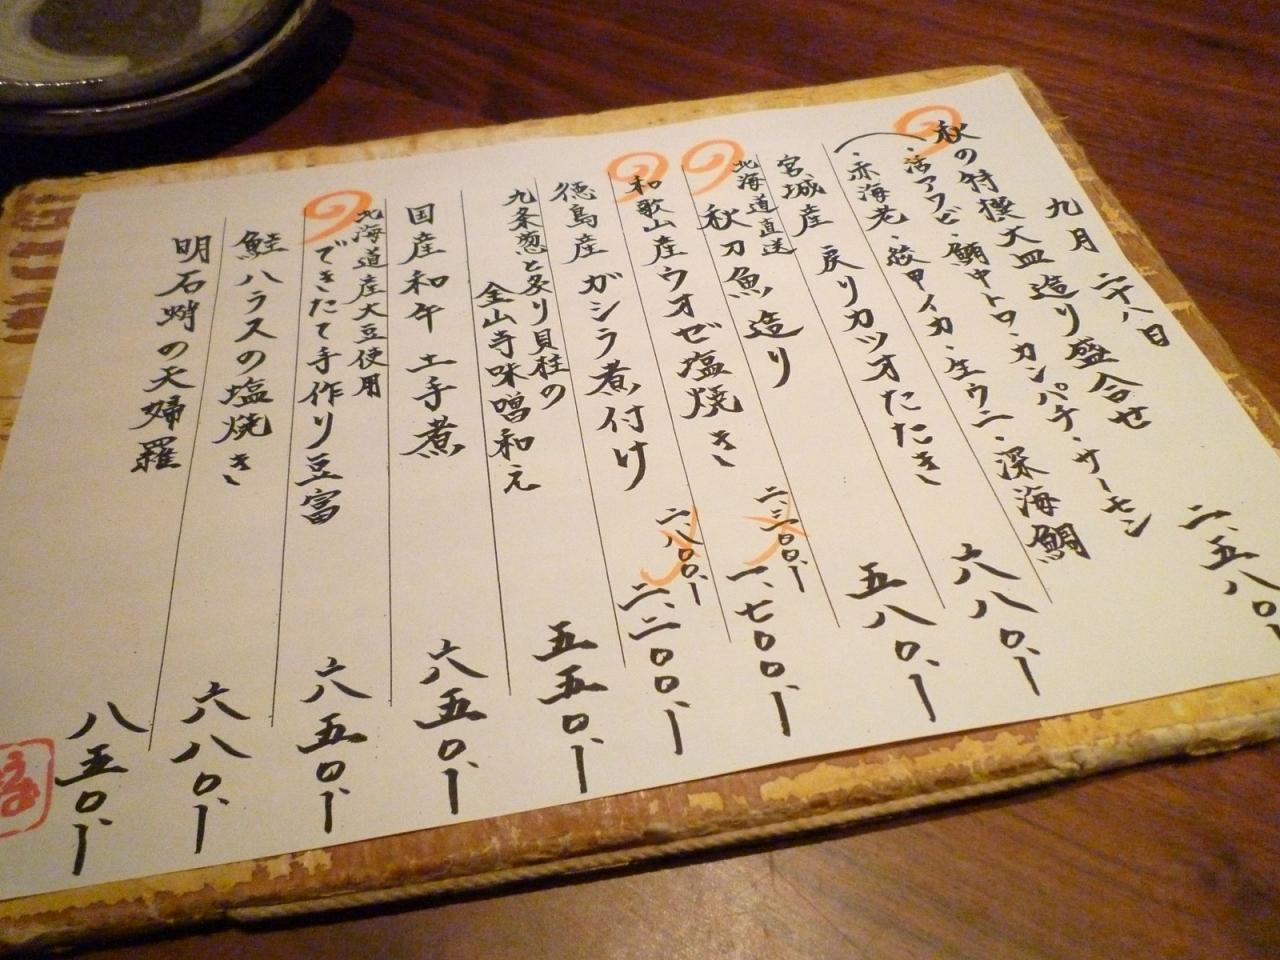 九月二十八日
秋の特撰大皿造り盛合せ 二、五八〇、ー
・活アワビ・鯛中トロ・カンパチ・サーモン
・赤海老・紋甲イカ・生ウニ・深海鯛
宮城産 戻りカツオたたき 六八〇、ー
北海道直送
秋刀魚造り 五八〇、ー
和歌山産ウオゼ塩焼き 二、三〇〇、ー 一、七〇〇、ー
徳島産ガシラ煮付け 二、八〇〇、ー 二、二〇〇、ー
九条葱と炙り貝柱の
金山寺味噌和え 五五〇、ー
国産和牛土手煮 六五〇、ー
北海道産大豆使用
できたて手作り豆富 六五〇、ー
鮭ハラスの塩焼き 六八〇、ー
明石蛸の天婦羅 八五〇、ー